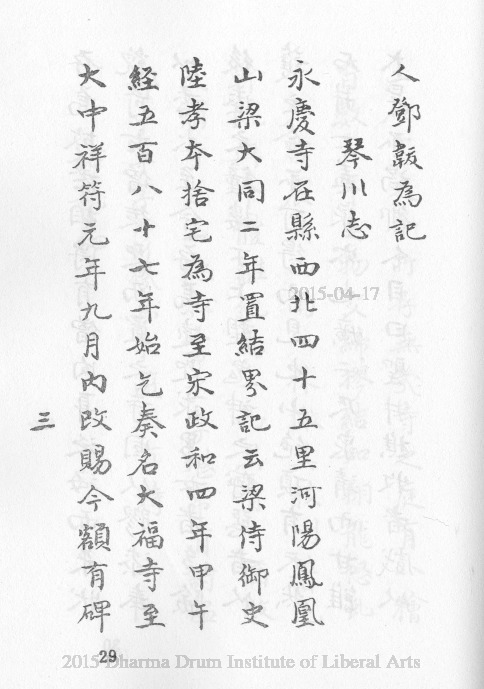 人鄧韍為記
琴川志
永慶寺在縣西北四十五里河陽鳳凰
山梁大同二年置結界記云梁侍御史
陸孝本捨宅為寺至宋政和四年甲午
経五百八十七年始乞奏名大福寺至
大中祥符元年九月內改賜今額有碑
三
29
2015-04-17
2015 Dharma Drum Institute of Liberal Arts